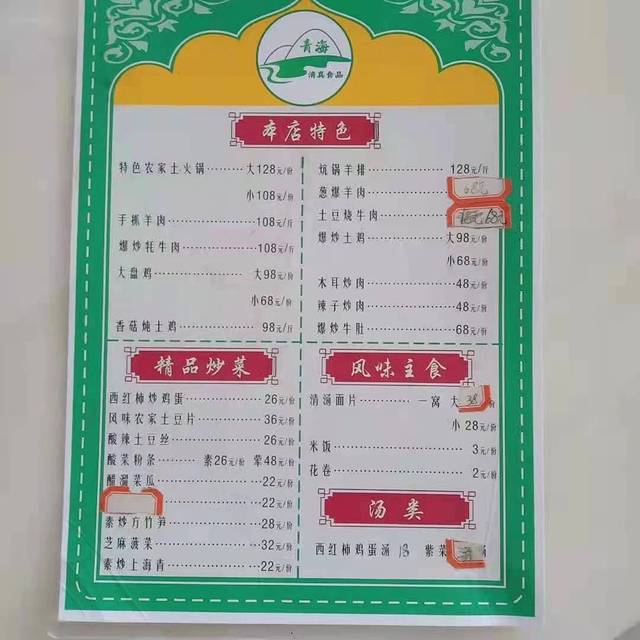 青海
清真食品
本店特色
特色农家土火锅………大128元/份
小108元/份
手抓羊肉………………108元/斤
爆炒牦牛肉……………108元/斤
大盘鸡………………大98元/份
小68元/份
香菇炖土鸡……………98元/斤
炕锅羊排………………128元/斤
葱爆羊肉………………68元
土豆烧牛肉………………68元
爆炒土鸡………………大98元/份
小68元/份
木耳炒肉………………48元/份
辣子炒肉………………48元/份
爆炒牛肚………………68元/份
精品炒菜
西红柿炒鸡蛋…………26元/份
风味农家土豆片………36元/份
酸辣土豆丝……………26元/份
酸菜粉条………素26元/份 荤48元/份
醋溜菜瓜………………22元/份
………………22元/份
素炒方竹笋……………28元/份
芝麻菠菜………………32元/份
素炒上海青……………22元/份
风味主食
清汤面片…………一窝 大38/份
小28元/份
米饭……………………3元/份
花卷……………………2元/份
汤类
西红柿鸡蛋汤 18 紫菜